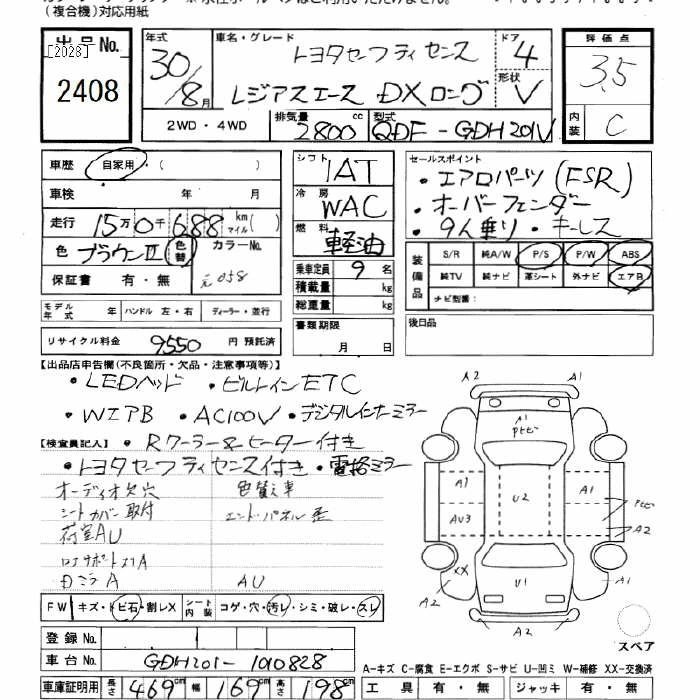 (複合機)対応用紙
出品No.
[2028]
2408
年式 30/8月
車名・グレード トヨタセーフティセンス
レジアスエース DXロング
ドア 4
形状 V
2WD・4WD
排気量 2800cc
型式 QDF-GDH201V
評価点 3.5
内装 C
車歴 自家用・( )
車検 年 月
走行 15万0千688 km マイル( )
色 ブラウンⅡ 色替 カラーNo. 元058
保証書 有・無
シフト IAT
冷房 WAC
燃料 軽油
乗車定員 9名
積載量 kg
総重量 kg
セールスポイント
・エアロパーツ(FSR)
・オーバーフェンダー
・9人乗り・キーレス
装備品 S/R 純A/W P/S P/W ABS
純TV 純ナビ 革シート 外ナビ エアB
ナビ型番:
モデル年式 年 ハンドル 左・右 ディーラー・並行
リサイクル料金 9550 円 預託済
書類期限 月 日
後日品
【出品店申告欄(不良箇所・欠品・注意事項等)】
・LEDヘッド ・ビルトインETC
・WエアB ・AC100V ・デジタルインナーミラー
【検査員記入】 ・Rクーラー&ヒーター付き
・トヨタセーフティセンス付き ・電格ミラー
オーディオ欠穴 色替え車
シートカバー取付 エンドパネル歪
荷室AU
A
Dミラ A AU
FW キズ・トビ石・割レX シート内装 コゲ・穴・汚レ・シミ・破レ・スレ
登録No.
車台No. GDH201-1010828
車庫証明用 長さ 469cm 幅 169cm 高さ 198cm
A2 A1
A1
Pトビ
A1 U2 A1
AU3 Pトビ
A2
XX U1 A1
A2
A2
スペア
A-キズ C-腐食 E-エクボ S-サビ U-凹ミ W-補修 XX-交換済
工具 有・無 ジャッキ 有・無